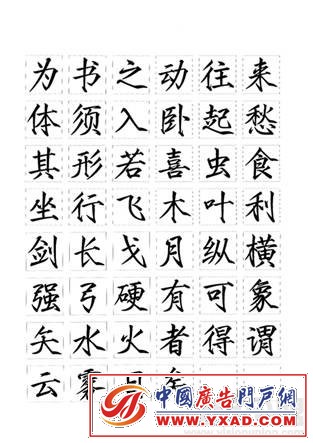 为书之动往来
体须入卧起愁
其形若喜虫食
坐行飞木叶利
剑长戈月纵横
强弓硬有可象
矢水火者得谓
云雾
中國廣告門戶網
WWW.YXAD.COM